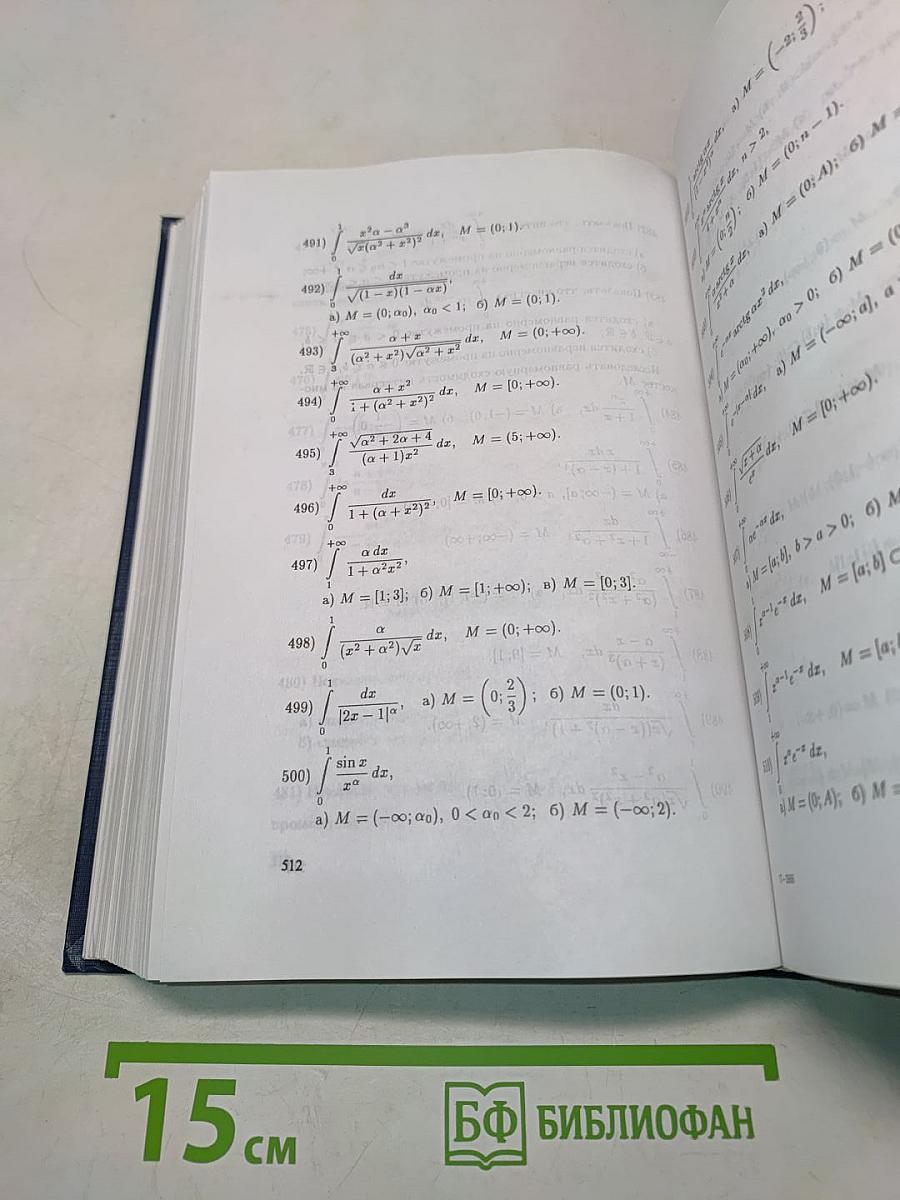 491) ∫₀¹ (x²α − α³)/(√x(α² + x²)²) dx, M = (0; 1).
492) ∫₀¹ dx/√((1 − x)(1 − αx)),
а) M = (0; α₀), α₀ < 1; б) M = (0; 1).
493) ∫₃^{+∞} (α + x)/((α² + x²)√(α² + x²)) dx, M = (0; +∞).
494) ∫₀^{+∞} (α + x²)/(1 + (α² + x²)²) dx, M = [0; +∞).
495) ∫₃^{+∞} √(α² + 2α + 4)/((α + 1)x²) dx, M = (5; +∞).
496) ∫₀^{+∞} dx/(1 + (α + x²)²), M = [0; +∞).
497) ∫₁^{+∞} α dx/(1 + α²x²),
а) M = [1; 3]; б) M = [1; +∞); в) M = [0; 3].
498) ∫₀¹ α/((x² + α²)√x) dx, M = (0; +∞).
499) ∫₀¹ dx/|2x − 1|^α, а) M = (0; 2/3); б) M = (0; 1).
500) ∫₀¹ sin x/x^α dx,
а) M = (−∞; α₀), 0 < α₀ < 2; б) M = (−∞; 2).
512
а) M = (−2; 2/3);
dx, n > 2,
б) M = (0; n − 1).
dx, а) M = (0; A); б) M =
M = (α₀; +∞), α₀ > 0; б) M =
dx, а) M = (−∞; a], a
dx, M = [0; +∞).
αe^{−αx} dx,
а) M = [a; b], b > a > 0; б)
x^{α−1}e^{−x} dx, M = [a; b]
x^{α−1}e^{−x} dx, M = [a;
x^α e^{−x} dx,
а) M = (0; A); б) M =
15 см
БФ БИБЛИОФАН